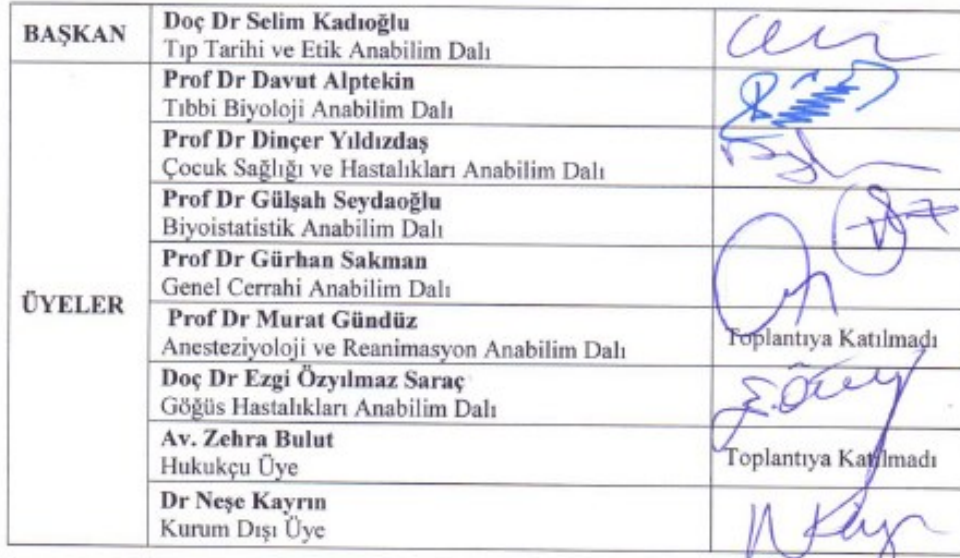 BAŞKAN
Doç Dr Selim Kadıoğlu
Tıp Tarihi ve Etik Anabilim Dalı
ÜYELER
Prof Dr Davut Alptekin
Tıbbi Biyoloji Anabilim Dalı
Prof Dr Dinçer Yıldızdaş
Çocuk Sağlığı ve Hastalıkları Anabilim Dalı
Prof Dr Gülşah Seydaoğlu
Biyoistatistik Anabilim Dalı
Prof Dr Gürhan Sakman
Genel Cerrahi Anabilim Dalı
Prof Dr Murat Gündüz
Anesteziyoloji ve Reanimasyon Anabilim Dalı
Toplantıya Katılmadı
Doç Dr Ezgi Özyılmaz Saraç
Göğüs Hastalıkları Anabilim Dalı
Av. Zehra Bulut
Hukukçu Üye
Toplantıya Katılmadı
Dr Neşe Kayrın
Kurum Dışı Üye